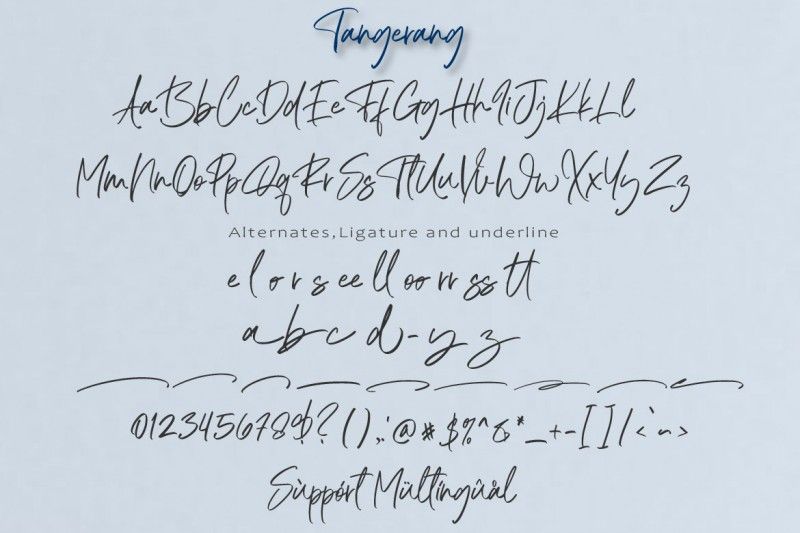 Tangerang
AaBbCcDdEeFfGgHhIiJjKkLl
MmNnOoPpQqRrSsTtUuVvWwXxYyZz
Alternates,Ligature and underline
e l o r s ee ll oo rr ss tt
a b c d-y z
0123456789!?(),;:@#$%^&*_+-[]/<`~>
Sùppórt Mültíngûål